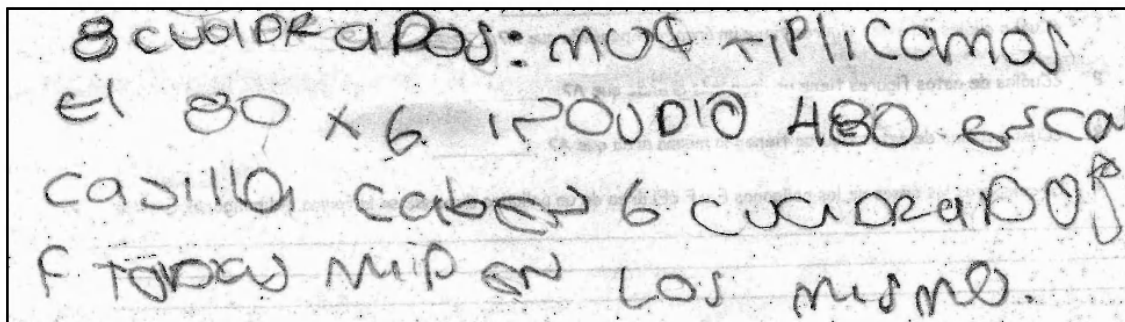 8 cuadrados: multiplicamos
el 80 x 6 i nos dio 480 en ca
casilla caben 6 cuadrados
F todas miden los mismo.